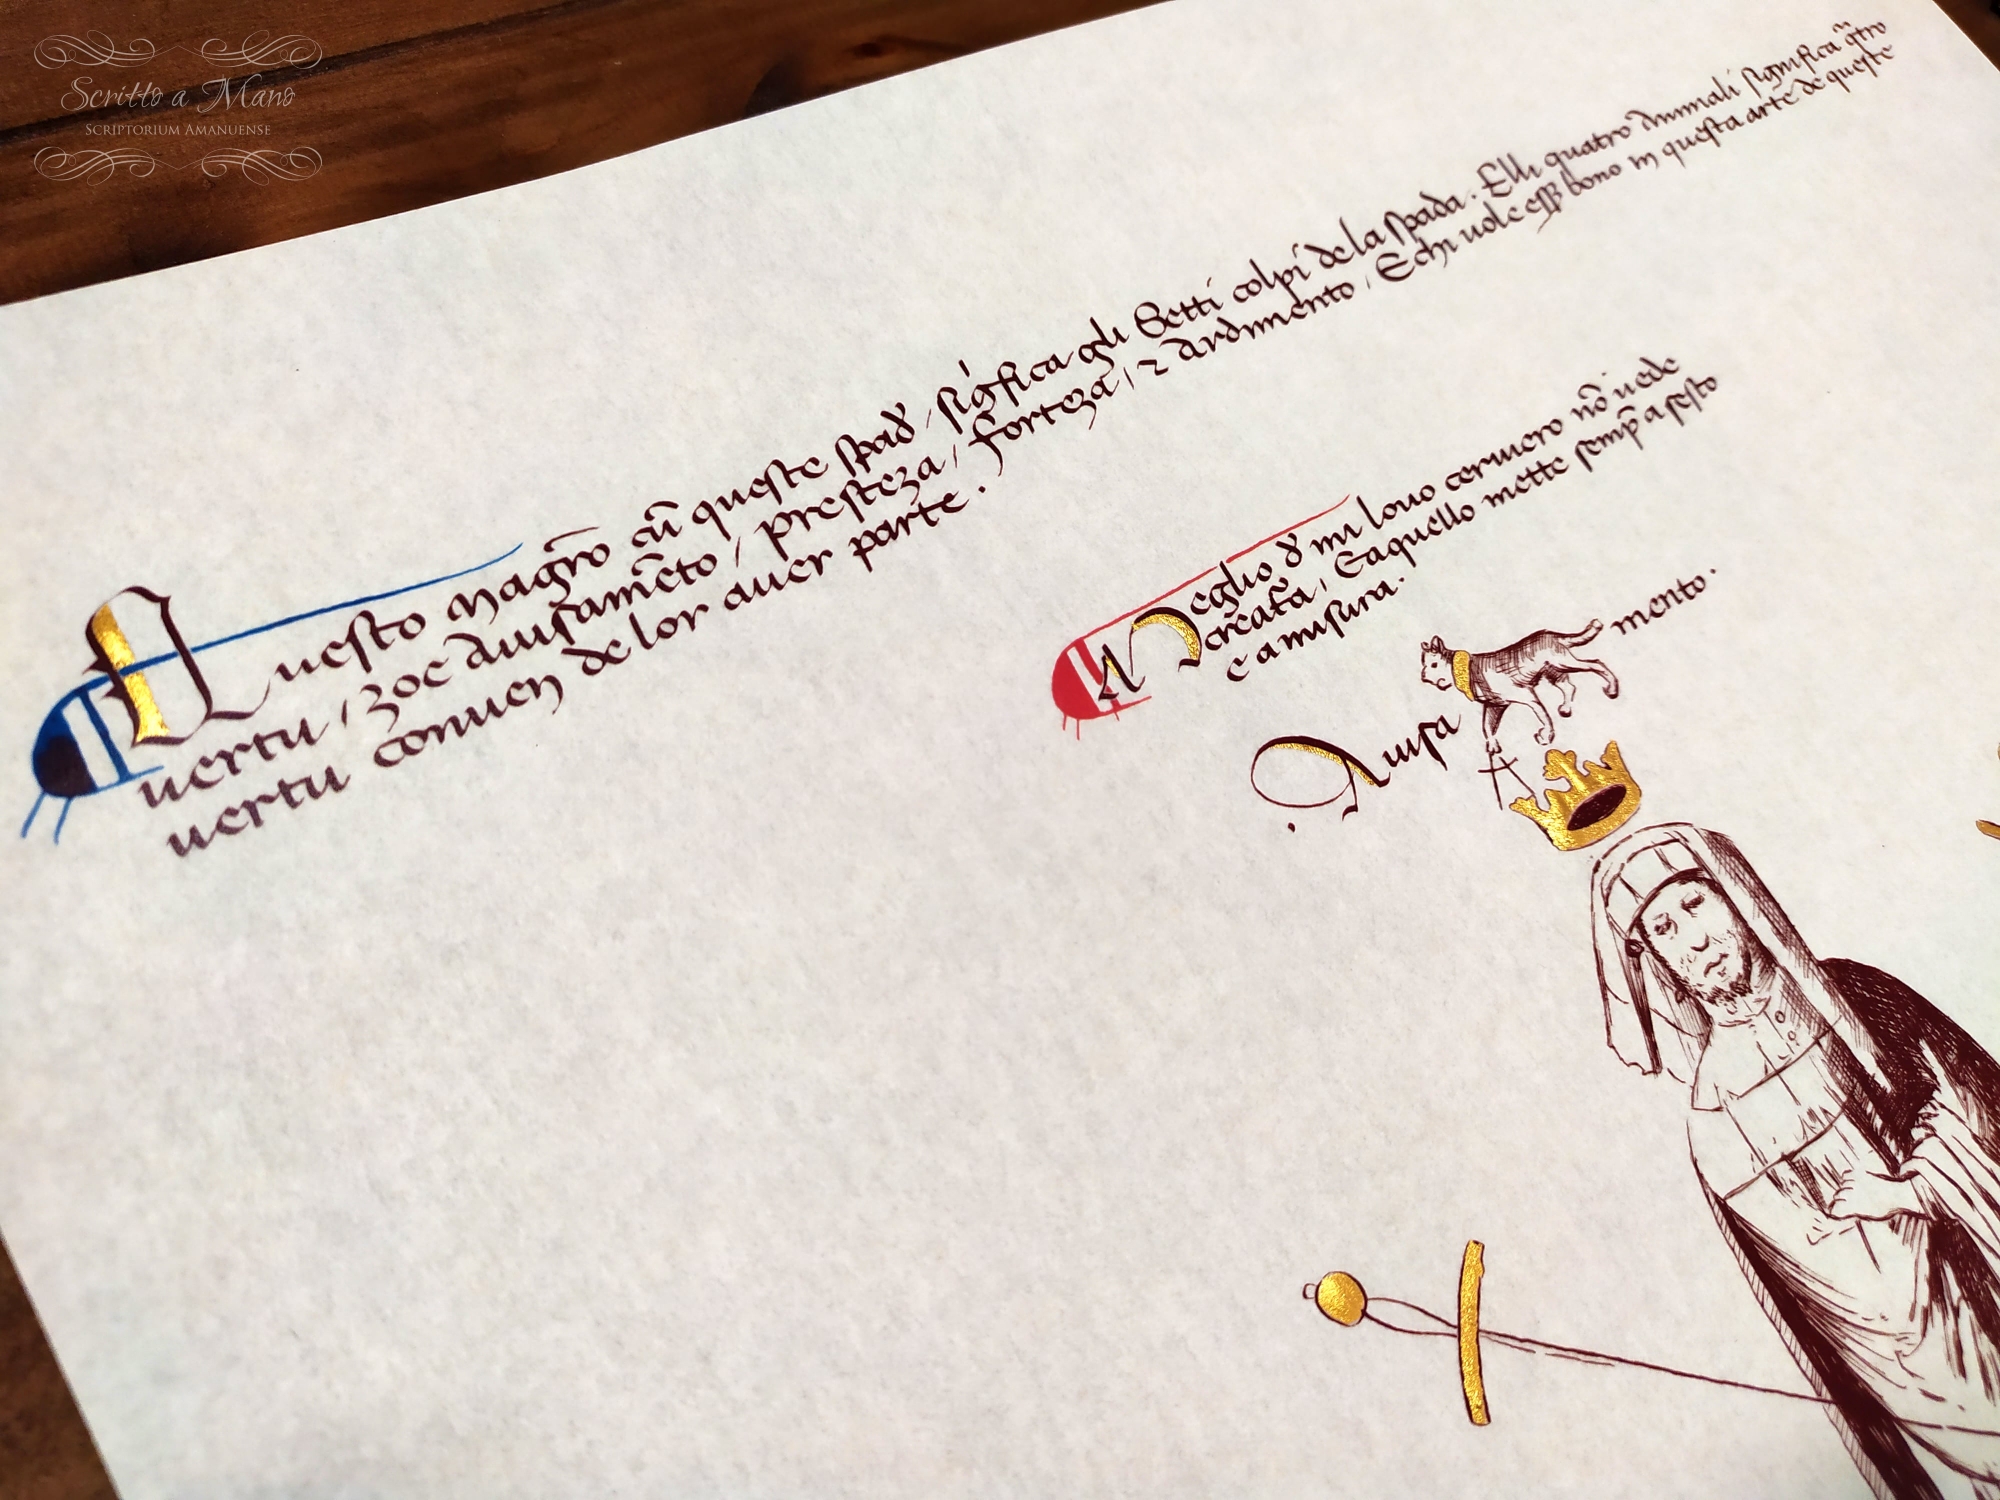 Scritto a Mano
SCRIPTORIUM AMANUENSE
Questo Magr̄o cū queste spad̄ / sigfica gli Setti colpi de la spada. Elli quatro Animali significā q̃tro
uertu / zoe Auisamēto / presteza / forteza / ⁊ Ardimento / E chi uole eēr bono in questa arte de queste
uertu conuen de lor auer parte.
Meglio d̄ mi louo ceruero nō uede
cr̄eat̄a / E aquello mette semp̄ a sesto
e a misura.
Auisa mento.